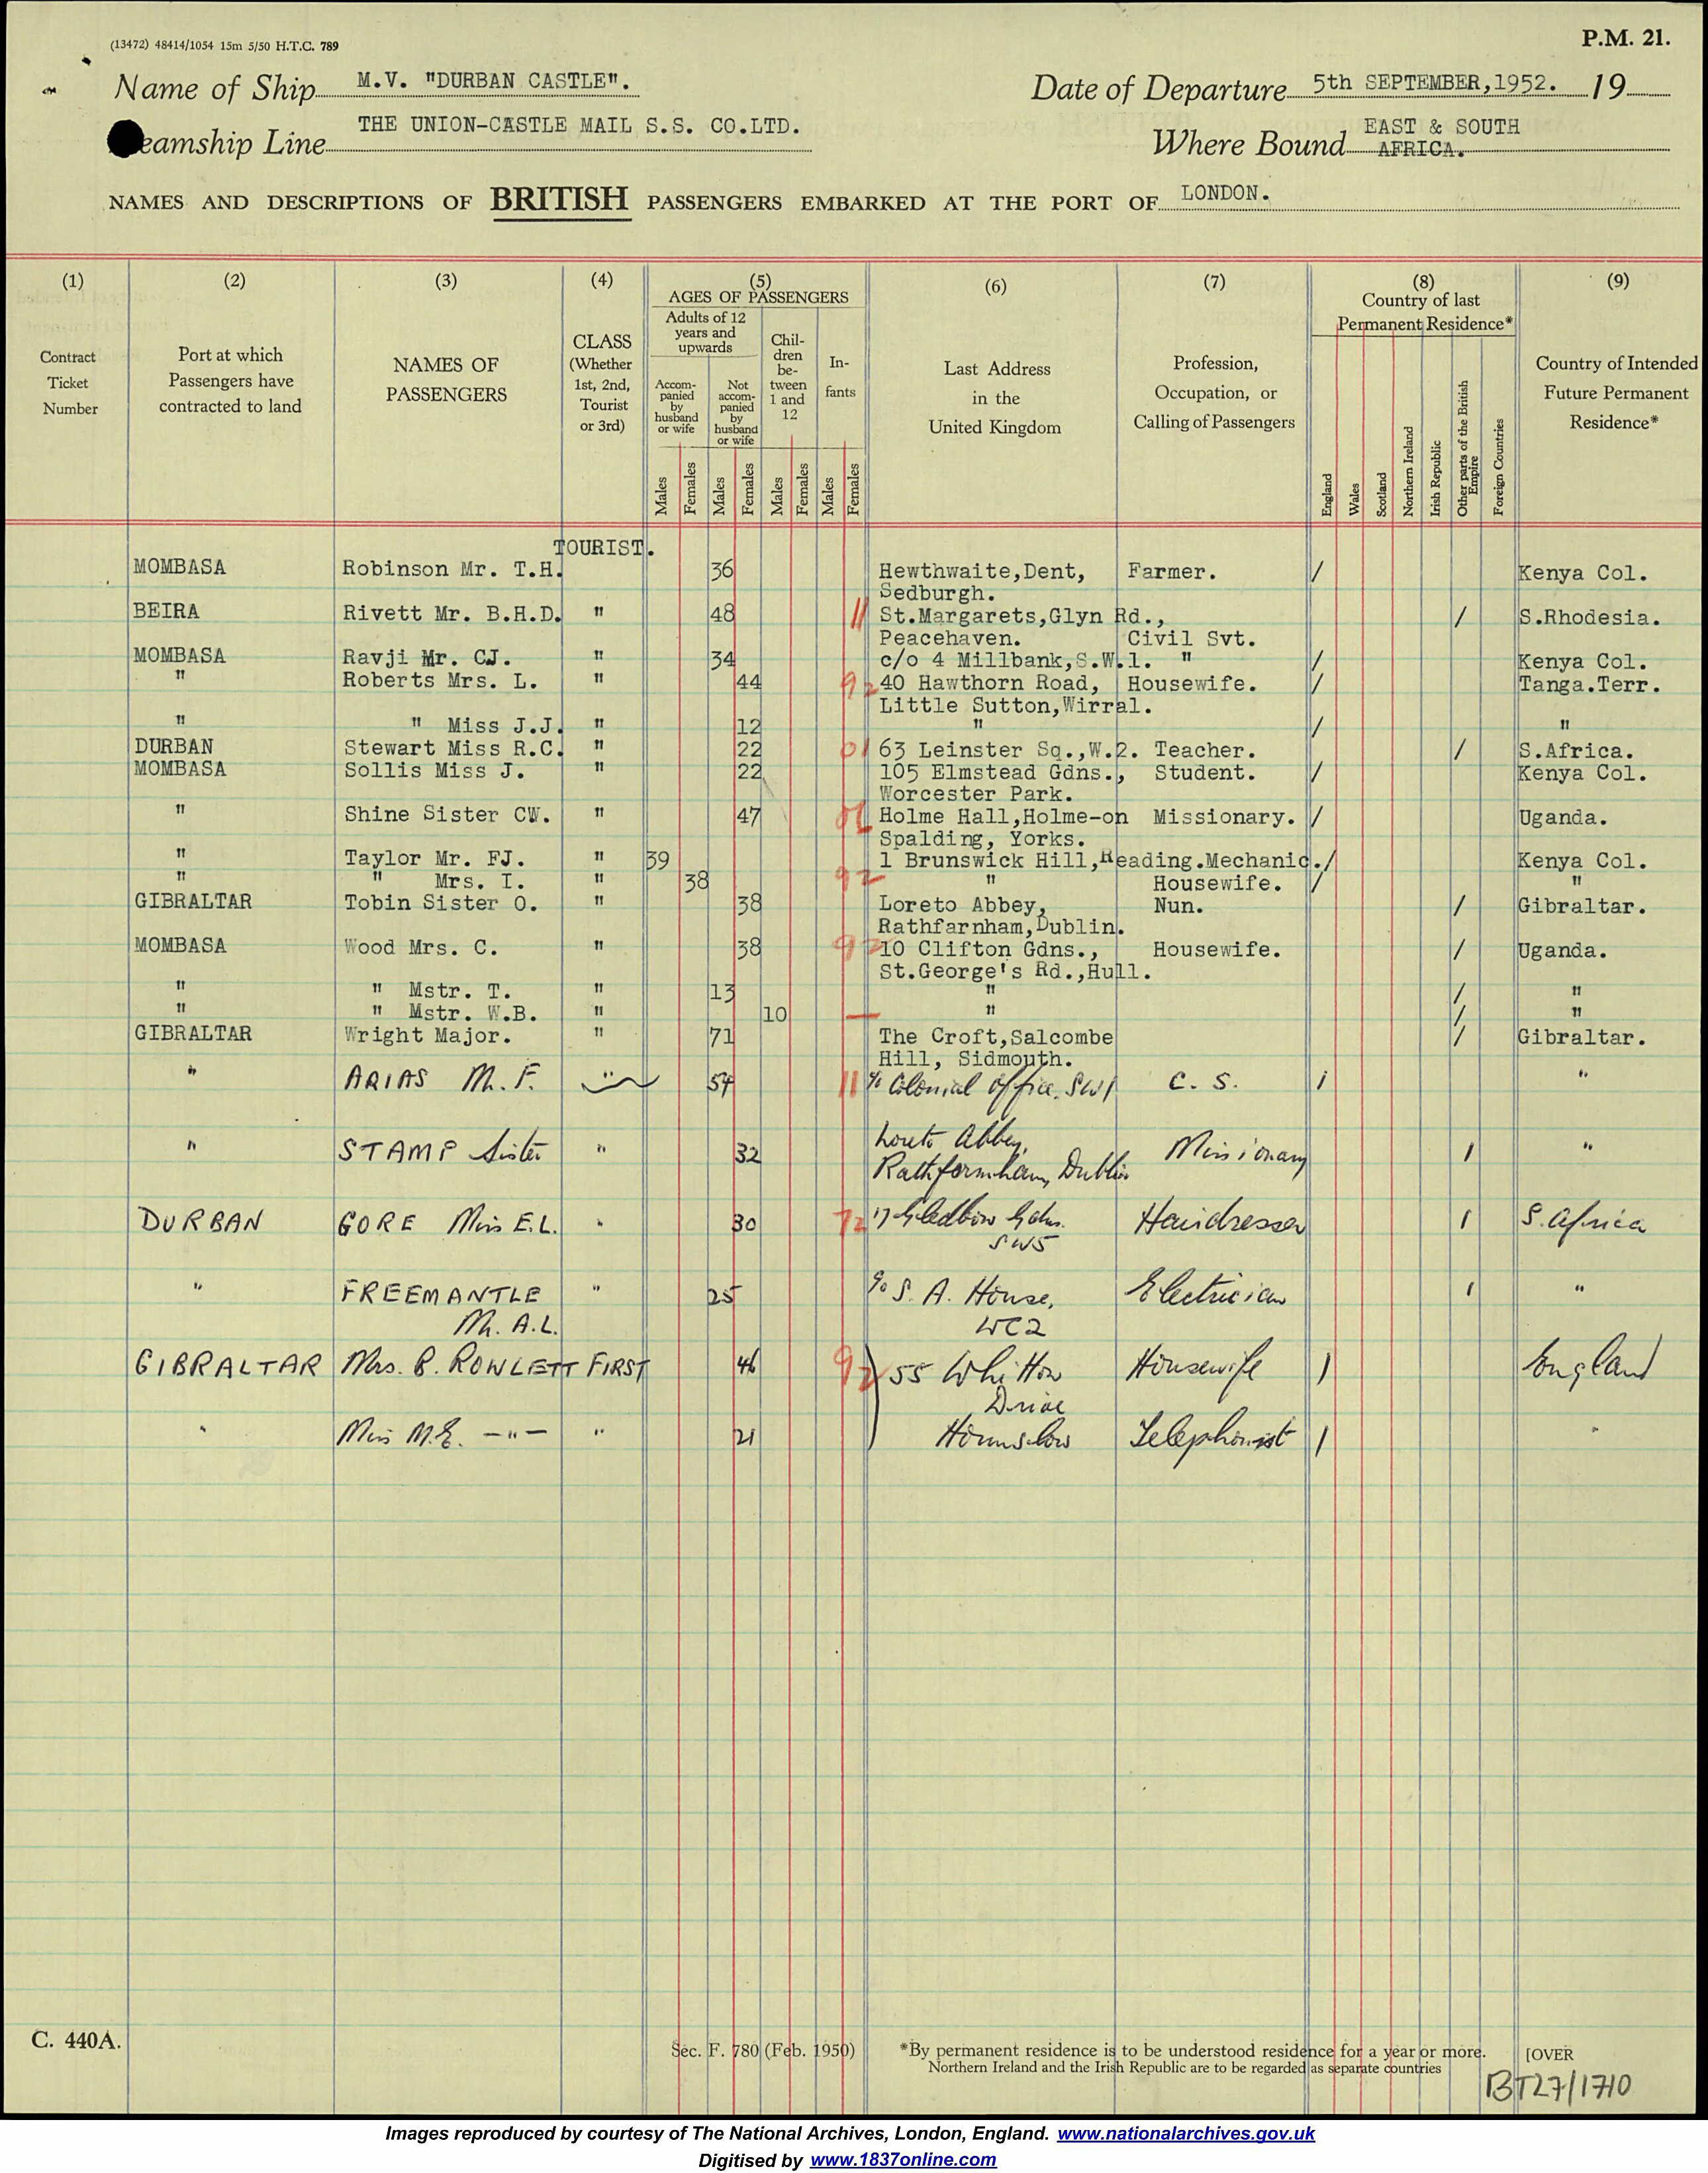 (13472) 48414/1054 15m 5/50 H.T.C. 789
P.M. 21.
Name of Ship M.V. "DURBAN CASTLE". Date of Departure 5th SEPTEMBER,1952. 19
eamship Line THE UNION-CASTLE MAIL S.S. CO.LTD. Where Bound EAST & SOUTH
AFRICA.
NAMES AND DESCRIPTIONS OF BRITISH PASSENGERS EMBARKED AT THE PORT OF LONDON.
(1) (2) (3) (4) (5) (6) (7) (8) (9)
Contract
Ticket
Number
Port at which
Passengers have
contracted to land
NAMES OF
PASSENGERS
CLASS
(Whether
1st, 2nd,
Tourist
or 3rd)
AGES OF PASSENGERS
Adults of 12
years and
upwards
Accom-
panied
by
husband
or wife
Not
accom-
panied
by
husband
or wife
Chil-
dren
be-
tween
1 and
12
In-
fants
Males Females Males Females Males Females Males Females
Last Address
in the
United Kingdom
Profession,
Occupation, or
Calling of Passengers
Country of last
Permanent Residence*
England
Wales
Scotland
Northern Ireland
Irish Republic
Other parts of the British
Empire
Foreign Countries
Country of Intended
Future Permanent
Residence*
TOURIST.
MOMBASA Robinson Mr. T.H. 36 Hewthwaite,Dent, Farmer. / Kenya Col.
Sedburgh.
BEIRA Rivett Mr. B.H.D. " 48 11 St.Margarets,Glyn Rd., / S.Rhodesia.
Peacehaven. Civil Svt.
MOMBASA Ravji Mr. CJ. " 34 c/o 4 Millbank,S.W.1. " / Kenya Col.
" Roberts Mrs. L. " 44 92 40 Hawthorn Road, Housewife. / Tanga.Terr.
Little Sutton,Wirral.
" " Miss J.J. " 12 " / "
DURBAN Stewart Miss R.C. " 22 01 63 Leinster Sq.,W.2. Teacher. / S.Africa.
MOMBASA Sollis Miss J. " 22 105 Elmstead Gdns., Student. / Kenya Col.
Worcester Park.
" Shine Sister CW. " 47 Holme Hall,Holme-on Missionary. / Uganda.
Spalding, Yorks.
" Taylor Mr. FJ. " 39 1 Brunswick Hill,Reading.Mechanic./ Kenya Col.
" " Mrs. I. " 38 92 " Housewife. / "
GIBRALTAR Tobin Sister O. " 38 Loreto Abbey, Nun. / Gibraltar.
Rathfarnham,Dublin.
MOMBASA Wood Mrs. C. " 38 92 10 Clifton Gdns., Housewife. / Uganda.
St.George's Rd.,Hull.
" " Mstr. T. " 13 " / "
" " Mstr. W.B. " 10 — " / "
GIBRALTAR Wright Major. " 71 The Croft,Salcombe / Gibraltar.
Hill, Sidmouth.
" ARIAS Mr. F. " 54 11 c/o Colonial Office. SW1 C. S. / "
" STAMP Sister " 32 Loreto Abbey, Missionary / "
Rathfarnham, Dublin
DURBAN GORE Miss E.L. " 30 72 17 Gledhow Gdns. Hairdresser / S. Africa
SW5
" FREEMANTLE " 25 c/o S. A. House, Electrician / "
Mr. A.L. WC2
GIBRALTAR Mrs. B. ROWLETT FIRST 46 92 55 Whitton Housewife / England
Drive
" Miss M.E. -"- " 21 Hounslow Telephonist / "
C. 440A.
Sec. F. 780 (Feb. 1950)
*By permanent residence is to be understood residence for a year or more.
Northern Ireland and the Irish Republic are to be regarded as separate countries
[OVER
BT27/1710
Images reproduced by courtesy of The National Archives, London, England. www.nationalarchives.gov.uk
Digitised by www.1837online.com